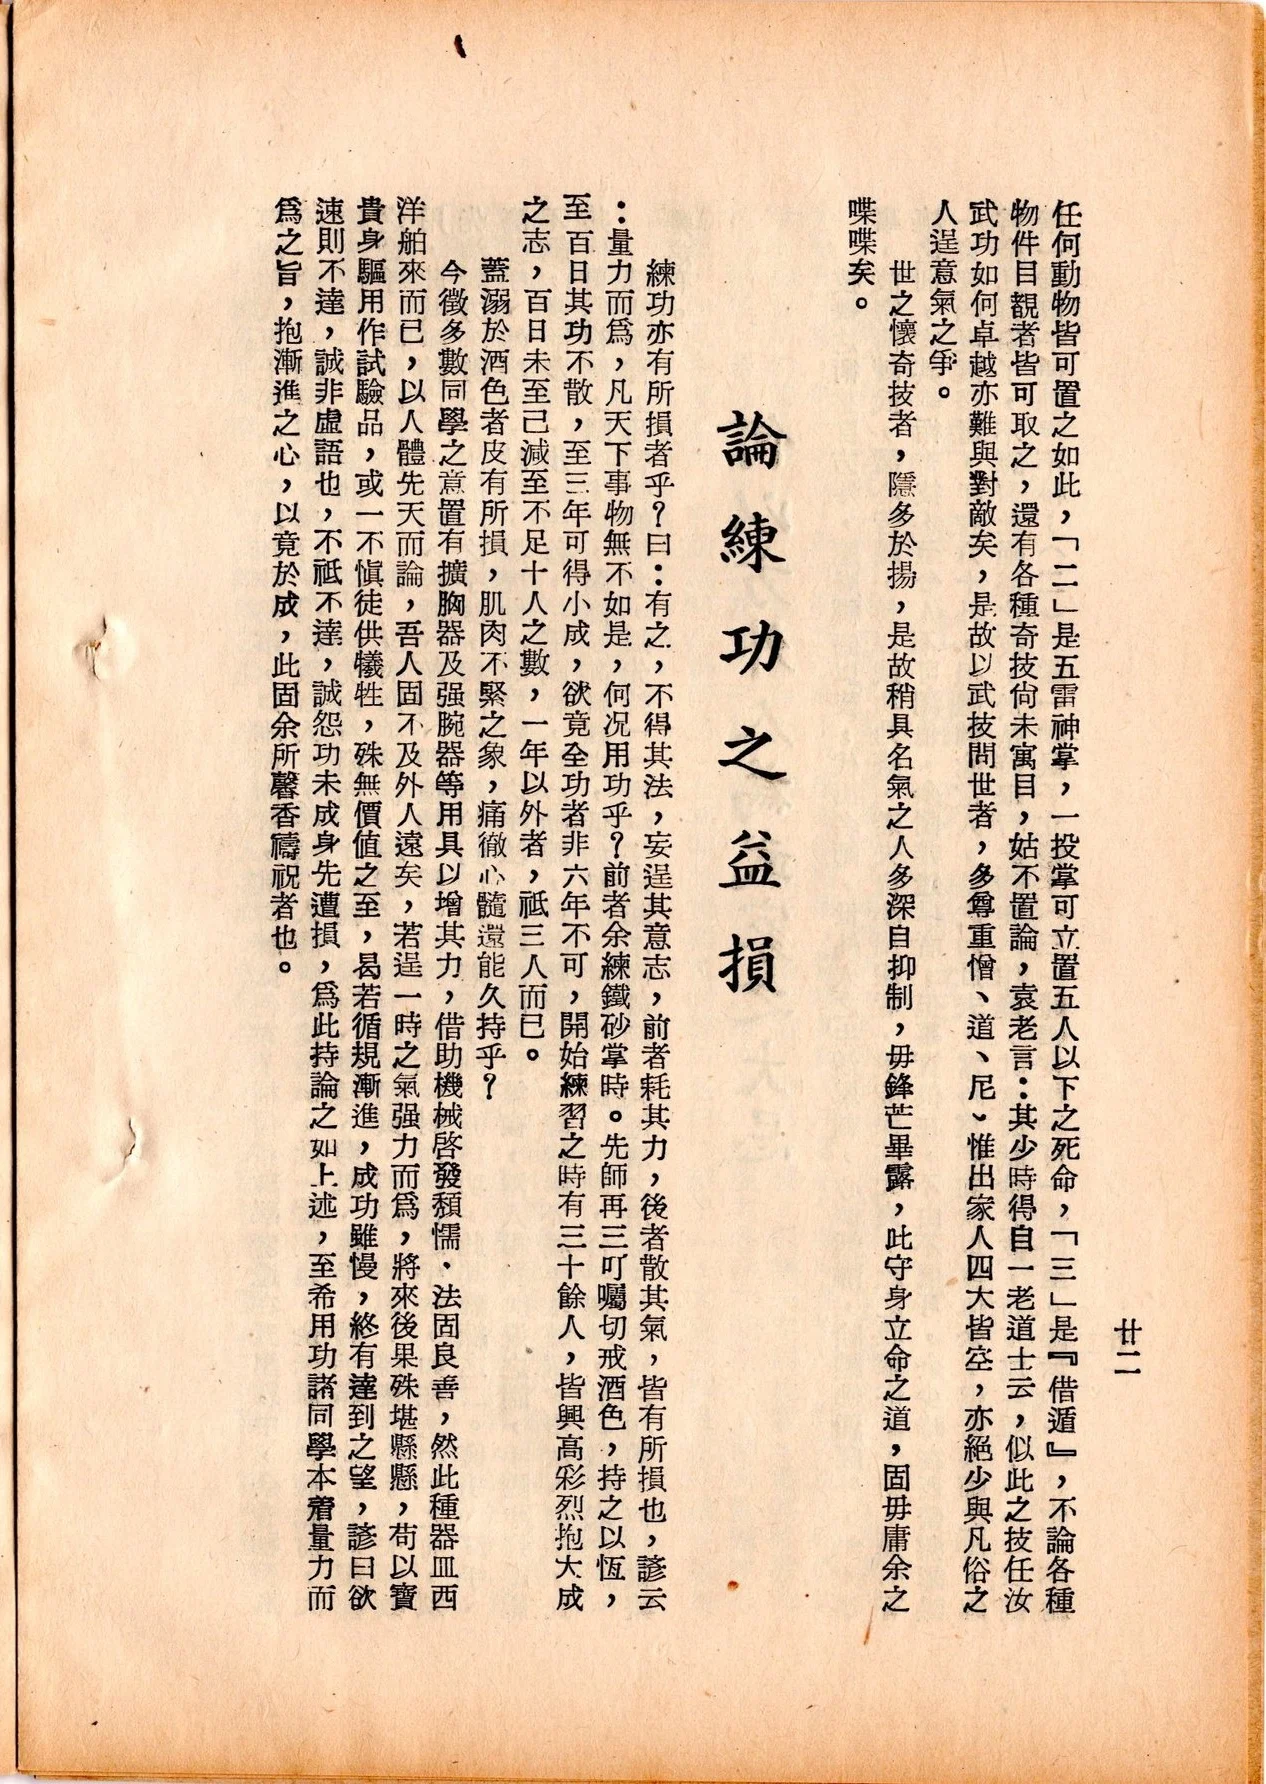 廿二
任何動物皆可置之如此，「二」是五雷神掌，一投掌可立置五人以下之死命，「三」是『借遁』，不論各種
物件目觀者皆可取之，還有各種奇技尙未寓目，姑不置論，袁老言：其少時得自一老道士云，似此之技任汝
武功如何卓越亦難與對敵矣，是故以武技問世者，多尊重憎、道、尼、惟出家人四大皆空，亦絕少與凡俗之
人逞意氣之爭。
世之懷奇技者，隱多於揚，是故稍具名氣之人多深自抑制，毋鋒芒畢露，此守身立命之道，固毋庸余之
喋喋矣。
論練功之益損
練功亦有所損者乎？曰：有之，不得其法，妄逞其意志，前者耗其力，後者散其氣，皆有所損也，諺云
：量力而爲，凡天下事物無不如是，何況用功乎？前者余練鐵砂掌時。先師再三叮囑切戒酒色，持之以恆，
至百日其功不散，至三年可得小成，欲竟全功者非六年不可，開始練習之時有三十餘人，皆興高彩烈抱大成
之志，百日未至已減至不足十人之數，一年以外者，祗三人而已。
蓋溺於酒色者皮有所損，肌肉不緊之象，痛徹心髓還能久持乎？
今徵多數同學之意置有擴胸器及强腕器等用具以增其力，借助機械啓發頹懦．法固良善，然此種器皿西
洋舶來而已，以人體先天而論，吾人固不及外人遠矣，若逞一時之氣强力而爲，將來後果殊堪懸懸，苟以寶
貴身驅用作試驗品，或一不愼徒供犧牲，殊無價值之至，曷若循規漸進，成功雖慢，終有達到之望，諺曰欲
速則不達，誠非虛語也，不祗不達，誠怨功未成身先遭損，爲此持論之如上述，至希用功諸同學本着量力而
爲之旨，抱漸進之心，以竟於成，此固余所馨香禱祝者也。